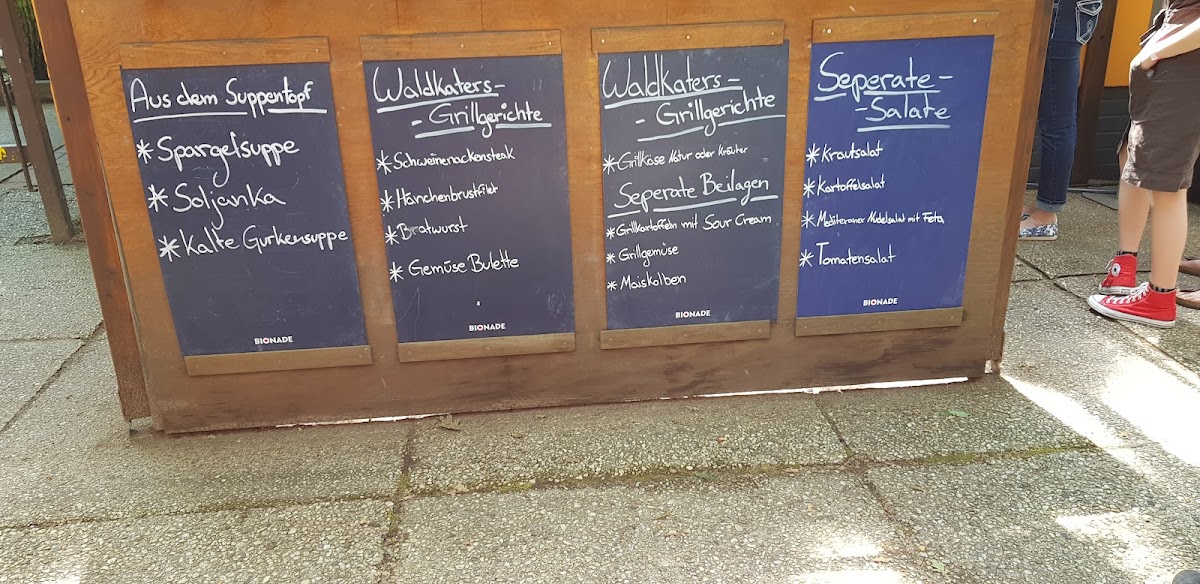 Aus dem Suppentopf
* Spargelsuppe
* Soljanka
* Kalte Gurkensuppe
BIONADE
Waldkaters-
- Grillgerichte
* Schweinenackensteak
* Hänchenbrustfilet
* Bratwurst
* Gemüse Bulette
BIONADE
Waldkaters-
- Grillgerichte
* Grillkäse Natur oder Kräuter
Seperate Beilagen
* Grillkartoffeln mit Sour Cream
* Grillgemüse
* Maiskolben
BIONADE
Seperate-
-Salate
* Krautsalat
* Kartoffelsalat
* Mediteraner Nudelsalat mit Feta
* Tomatensalat
BIONADE